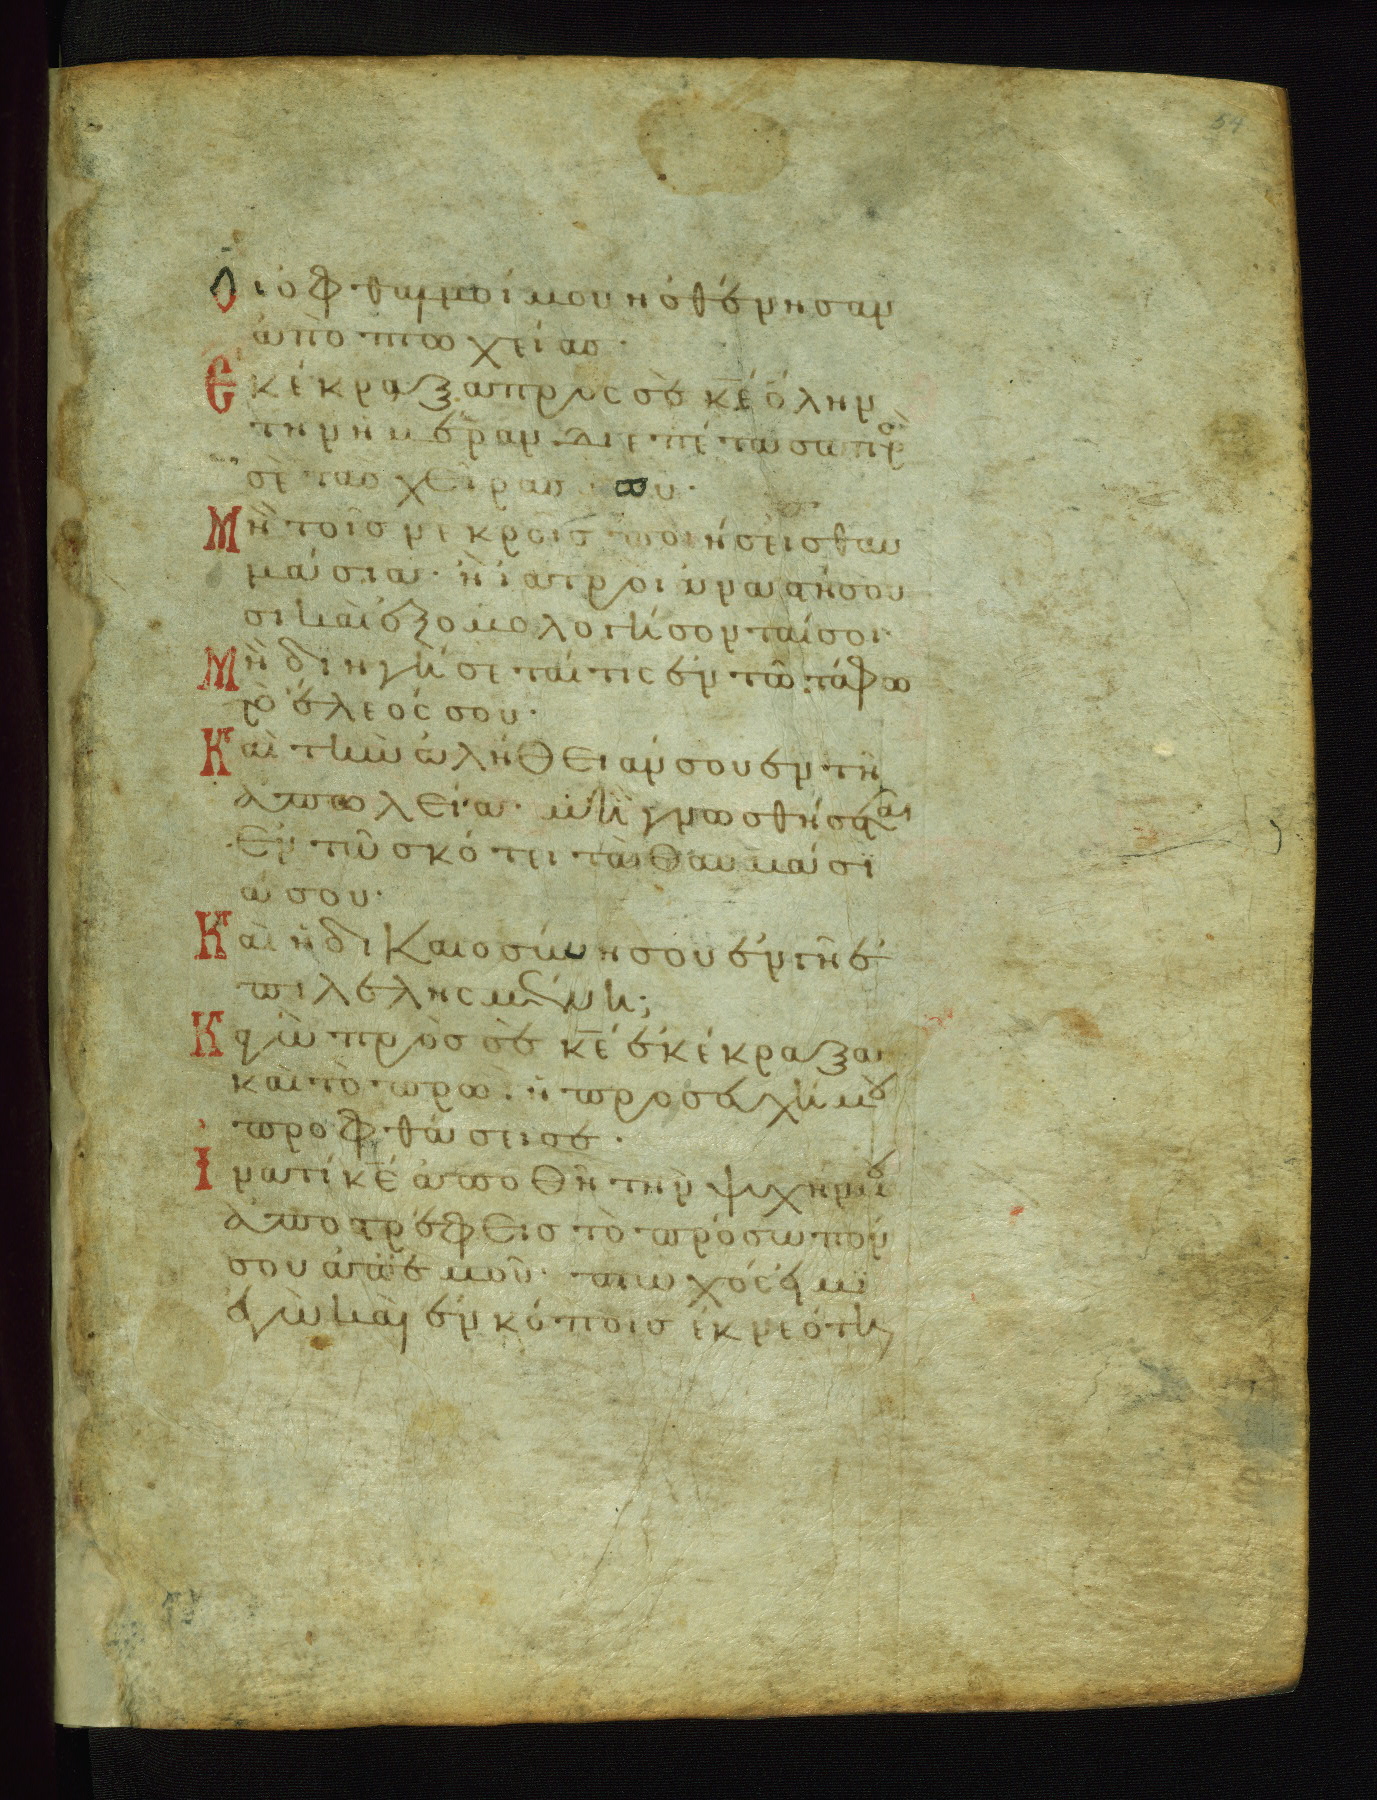 54
Οι ὀφθαλμοί μου ἠσθένησαν
ἀπὸ πτωχείας·
Εκέκραξα πρὸς σὲ κ̅ε̅ ὅλην
τὴν ἡμέραν διεπέτασα πρὸ
σὲ τὰς χεῖρας μου·
Μὴ τοῖς νεκροῖς ποιήσεις θαυ
μάσια· ἢ ἰατροὶ ἀναστήσου
σι καὶ ἐξομολογήσονταί σοι·
Μὴ διηγήσεταί τις ἐν τῶ τάφω
τὸ ἔλεός σου·
Καὶ τὴν ἀλήθειάν σου ἐν τῆ
ἀπωλεία· μὴ γνωσθήσεται
Ἐν τῶ σκότει τὰ θαυμάσι
ά σου·
Καὶ ἡ δικαιοσύνη σου ἐν γῆ ἐ
πιλελησμένη;
Κἀγὼ πρὸς σὲ κ̅ε̅ ἐκέκραξα
καὶ τὸ πρωῒ ἡ προσευχή μου
προφθάσει σε·
Ινατί κ̅ε̅ ἀπωθῆ τὴν ψυχήν μου
ἀποστρέφεις τὸ πρόσωπόν
σου ἀπ' ἐμοῦ· πτωχός εἰμι
ἐγὼ καὶ ἐν κόποις ἐκ νεότη